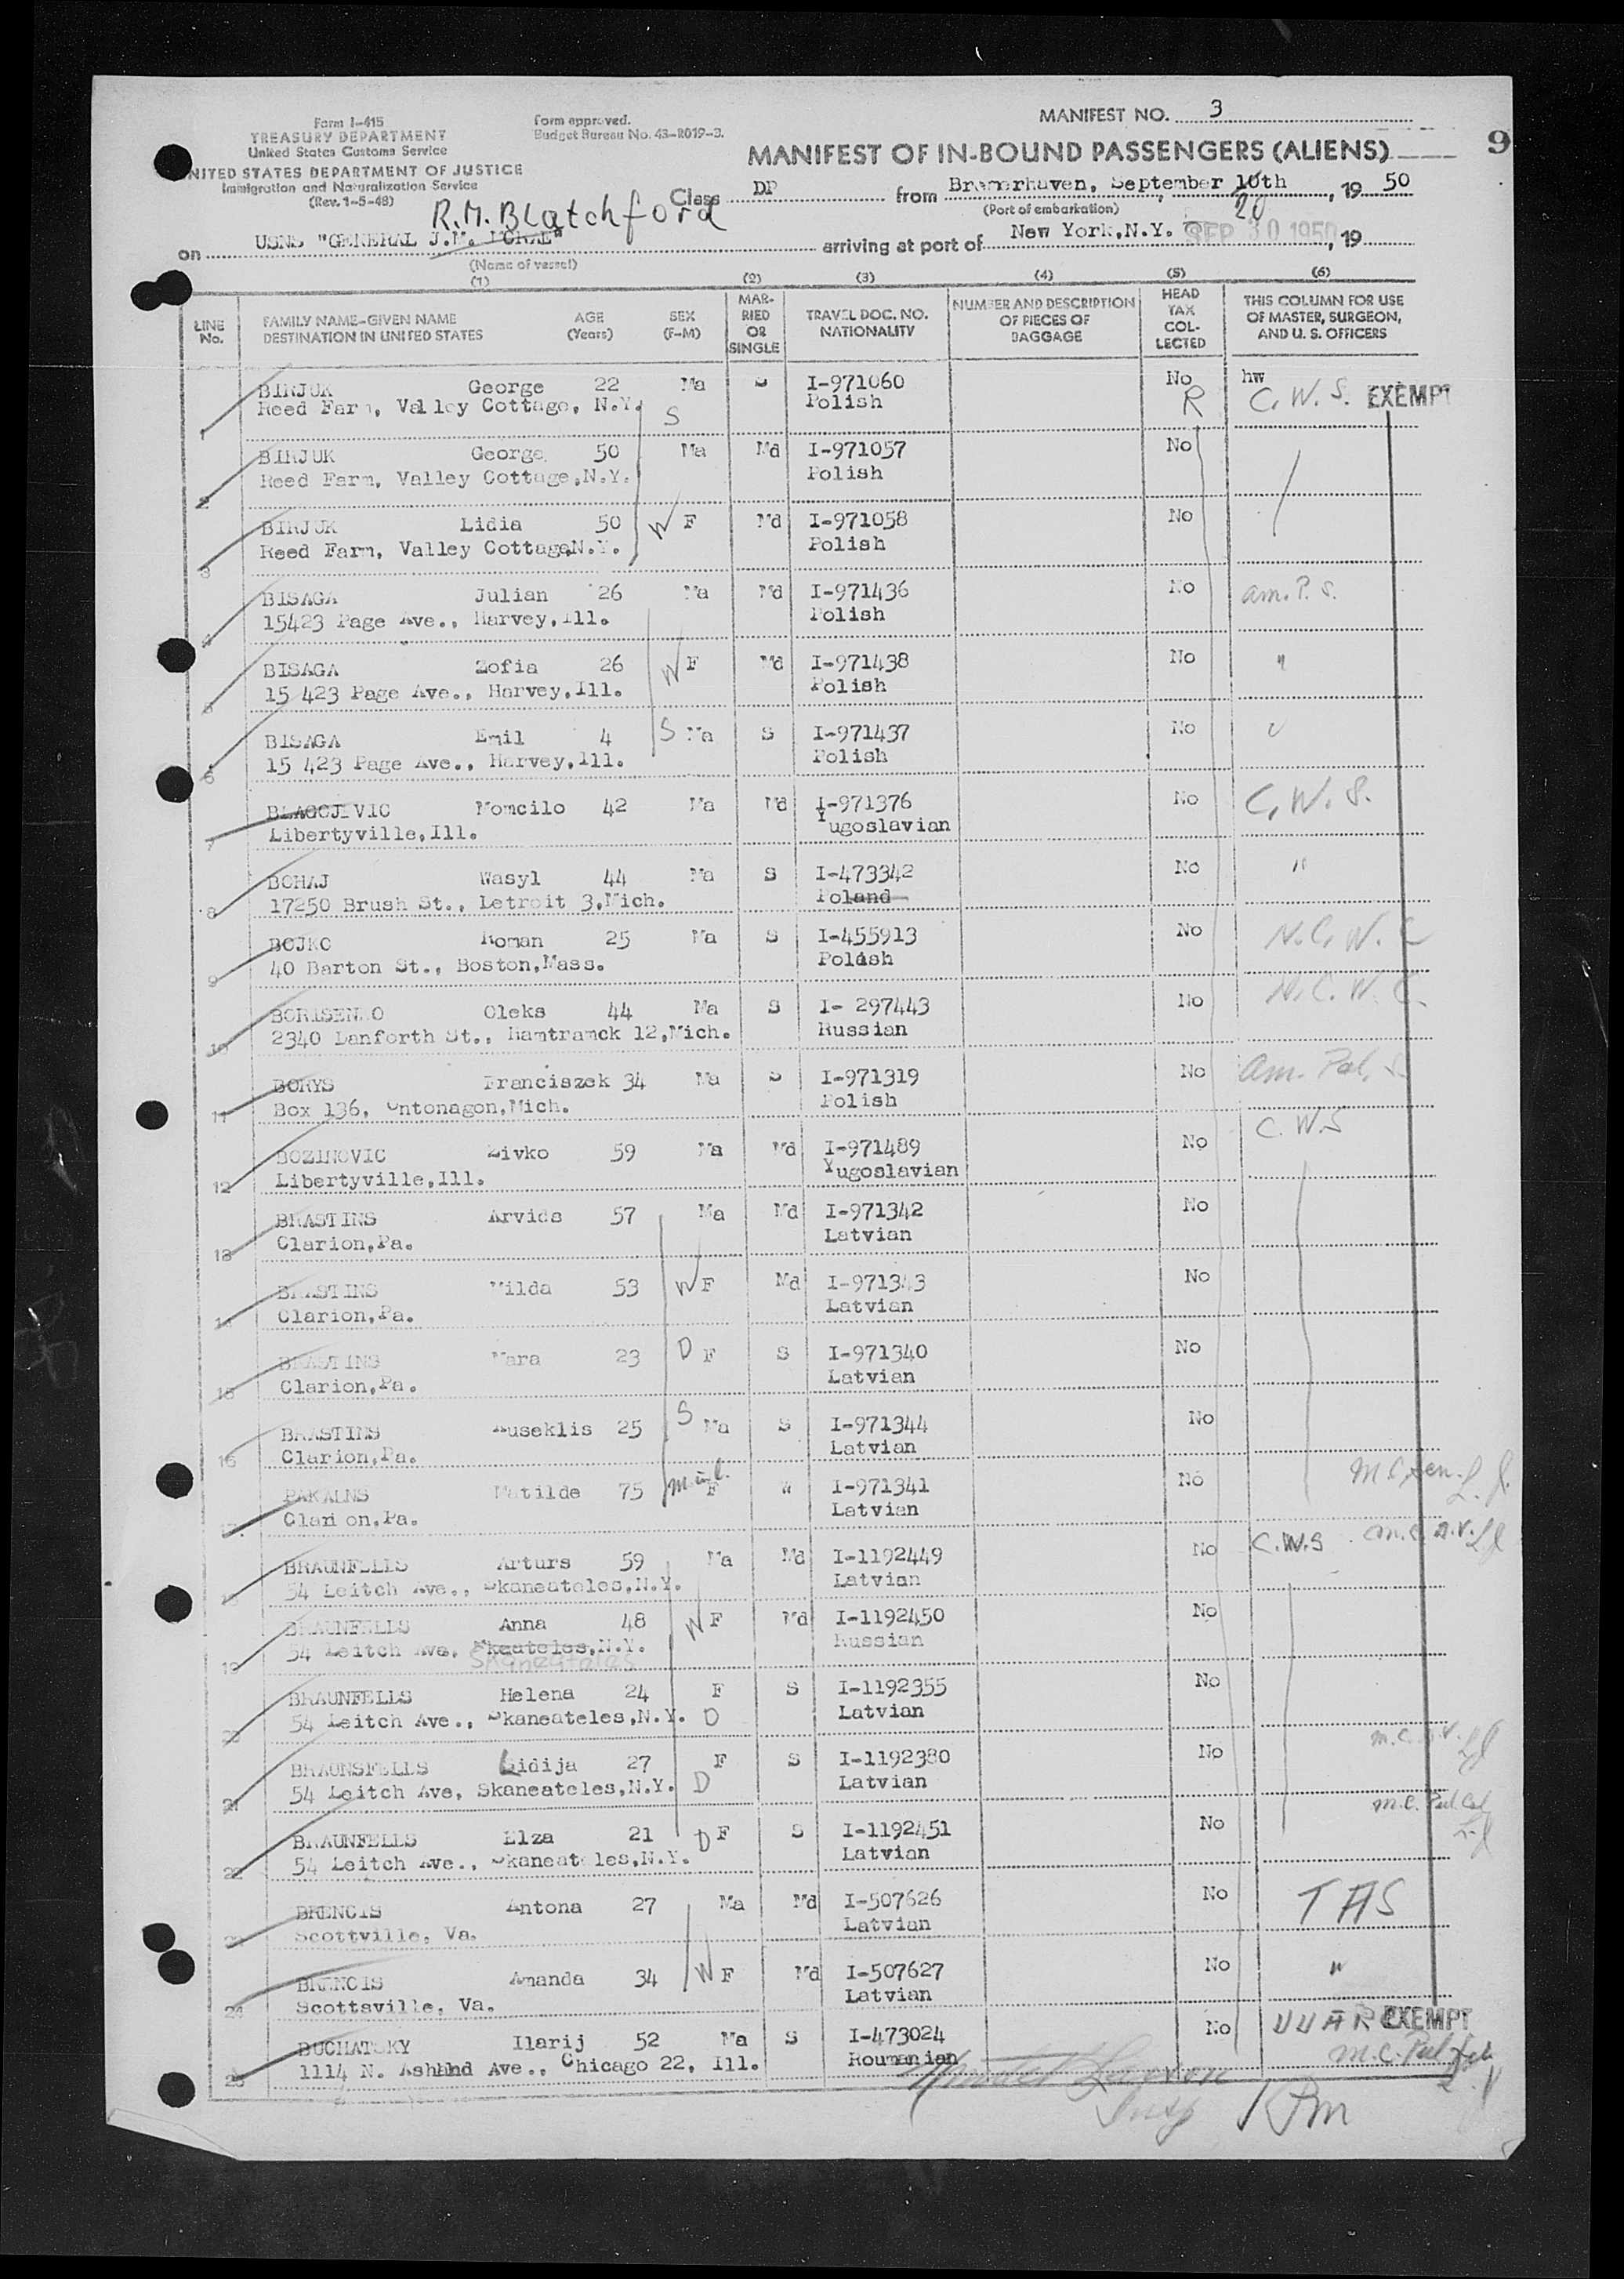 Form I-415
TREASURY DEPARTMENT
United States Customs Service
UNITED STATES DEPARTMENT OF JUSTICE
Immigration and Naturalization Service
(Rev. 1-5-48)
Form approved.
Budget Bureau No. 43-R019-3.
MANIFEST NO. 3
9
MANIFEST OF IN-BOUND PASSENGERS (ALIENS)
Class DP from Bremerhaven, September 10th 20, 19 50
(Port of embarkation)
R.M. Blatchford
on USNS "GENERAL J.H. McRAE" arriving at port of New York, N.Y. SEP 30 1950, 19
(Name of vessel)
(1) (2) (3) (4) (5) (6)
LINE No. FAMILY NAME-GIVEN NAME DESTINATION IN UNITED STATES AGE (Years) SEX (F-M) MARRIED OR SINGLE TRAVEL DOC. NO. NATIONALITY NUMBER AND DESCRIPTION OF PIECES OF BAGGAGE HEAD TAX COLLECTED THIS COLUMN FOR USE OF MASTER, SURGEON, AND U. S. OFFICERS
BIRJUK George 22 Ma S I-971060 No hw
1 Reed Farm, Valley Cottage, N.Y. S Polish R C.W.S. EXEMPT
BIRJUK George 50 Ma Md I-971057 No
2 Reed Farm, Valley Cottage,N.Y. Polish
BIRJUK Lidia 50 W F Md I-971058 No
3 Reed Farm, Valley Cottage,N.Y. Polish
BISAGA Julian 26 Ma Md I-971436 No am. P. S.
4 15423 Page Ave., Harvey,Ill. Polish
BISAGA Zofia 26 W F Md I-971438 No "
5 15 423 Page Ave., Harvey,Ill. Polish
BISAGA Emil 4 S Ma S I-971437 No "
6 15 423 Page Ave., Harvey,Ill. Polish
BLAGOJEVIC Momcilo 42 Ma Md I-971376 No C.W.S.
7 Libertyville,Ill. Yugoslavian
BOHAJ Wasyl 44 Ma S I-473342 No "
8 17250 Brush St., Detroit 3,Mich. Poland
BOJKO Roman 25 Ma S I-455913 No N.C.W.C
9 40 Barton St., Boston,Mass. Polish
BORISENKO Oleks 44 Ma S I- 297443 No N.C.W.C.
10 2340 Danforth St., Hamtramck 12,Mich. Russian
BORYS Franciszek 34 Ma S I-971319 No Am. Pol. S.
11 Box 136, Ontonagon,Mich. Polish
BOZINOVIC Zivko 59 Ma Md I-971489 No C.W.S
12 Libertyville,Ill. Yugoslavian
BRASTINS Arvids 57 Ma Md I-971342 No
13 Clarion,Pa. Latvian
BRASTINS Milda 53 W F Md I-971343 No
14 Clarion,Pa. Latvian
BRASTINS Mara 23 D F S I-971340 No
15 Clarion,Pa. Latvian
BRASTINS Auseklis 25 S Ma S I-971344 No
16 Clarion,Pa. Latvian
PAKALNS Matilde 75 m-in-l. F W I-971341 No M.C. sen.
17 Clari on,Pa. Latvian
BRAUNFELLS Arturs 59 Ma Md I-1192449 No C.W.S
54 Leitch Ave., Skaneateles,N.Y. Latvian
BRAUNFELLS Anna 48 W F Md I-1192450 No
19 54 Leitch Ave, Skeateles,N.Y. Russian
Skaneateles
BRAUNFELLS Helena 24 F S I-1192355 No
20 54 Leitch Ave., Skaneateles,N.Y. D Latvian
BRAUNSFELLS Lidija 27 F S I-1192380 No m.c.
21 54 Leitch Ave, Skaneateles,N.Y. D Latvian
BRAUNFELLS Elza 21 D F S I-1192451 No M.C.
22 54 Leitch Ave., Skaneateles,N.Y. Latvian
BRENCIS Antona 27 Ma Md I-507626 No TAS
Scottville, Va. Latvian
BRENCIS Amanda 34 W F Md I-507627 No "
24 Scottsville, Va. Latvian
BUCHATSKY Ilarij 52 Ma S I-473024 No UUARC EXEMPT
25 1114 N. Ashland Ave., Chicago 22, Ill. Roumanian M.C. Pul
Insp